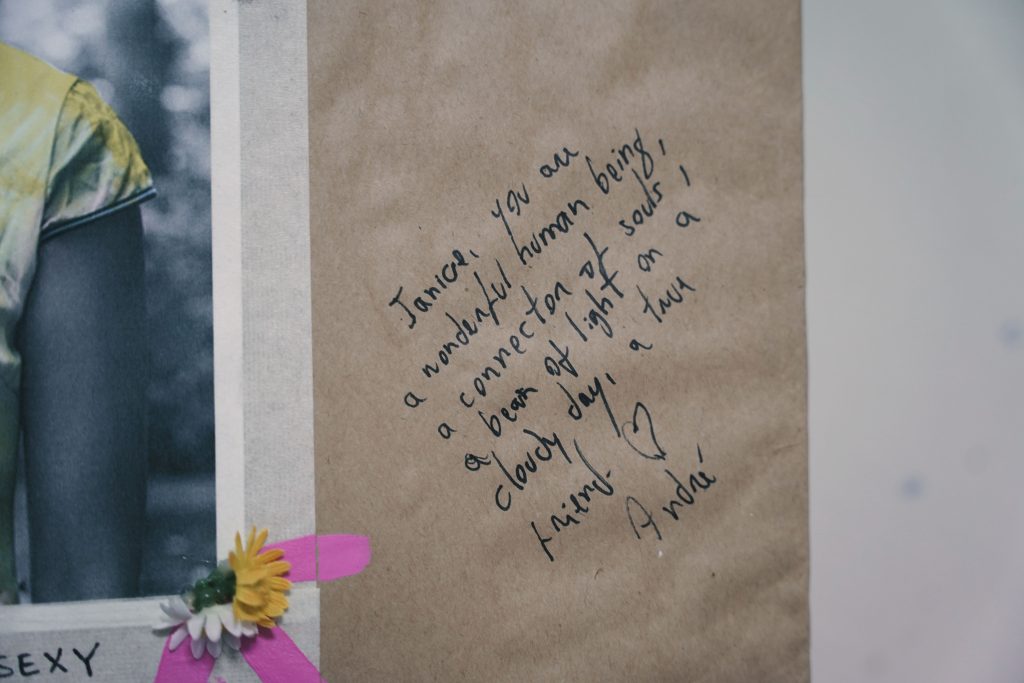 Janice, you are
a wonderful human being,
a connector of souls,
a beam of light on a
cloudy day, a true
friend. ♡
André
SEXY